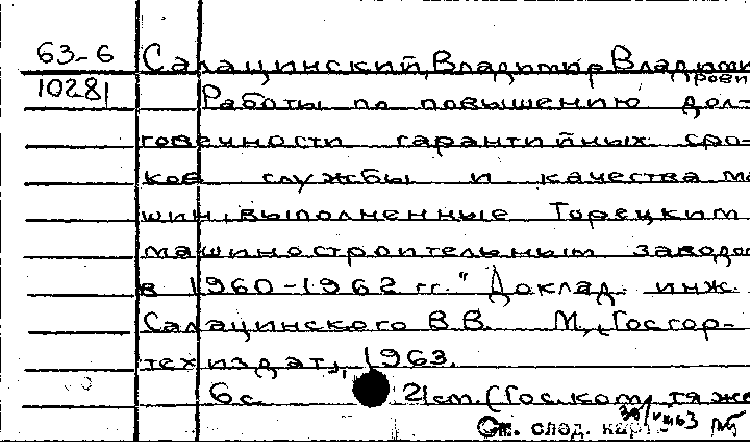 63-6 Салацинский, Владимир Влади
рови
10281 Работы по повышению дол-
говечности гарантийных сро-
ков службы и качества ма
шин, выполненные Торецким
машиностроительным заводо
в 1960-1962 гг." Доклад. инж.
Салацинского В.В. М., Госгор-
техиздат, 1963.
6 с. 21 см. (Гос. ком. тяже
См. след. карт.